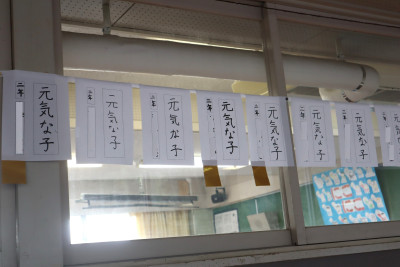 元気な子
二年
元気な子
二年
元気な子
二年
元気な子
二年
元気な子
二年
元気な子
元気な子
元気な子